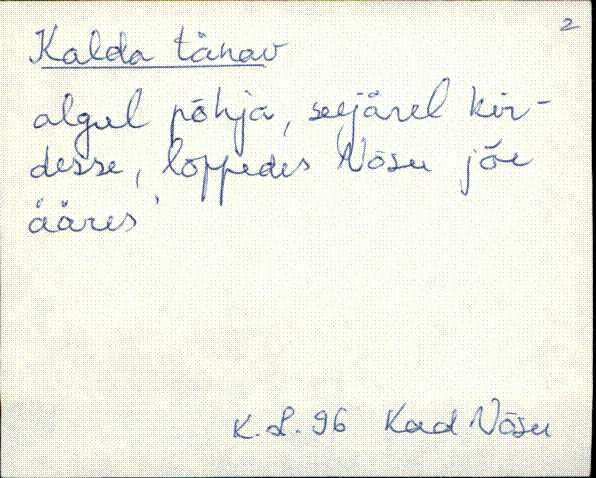 2
Kalda tänav
algul põhja, seejärel kir-
desse, loppedes Võsu jõe
ääres
K.L.96 Kad Võsu